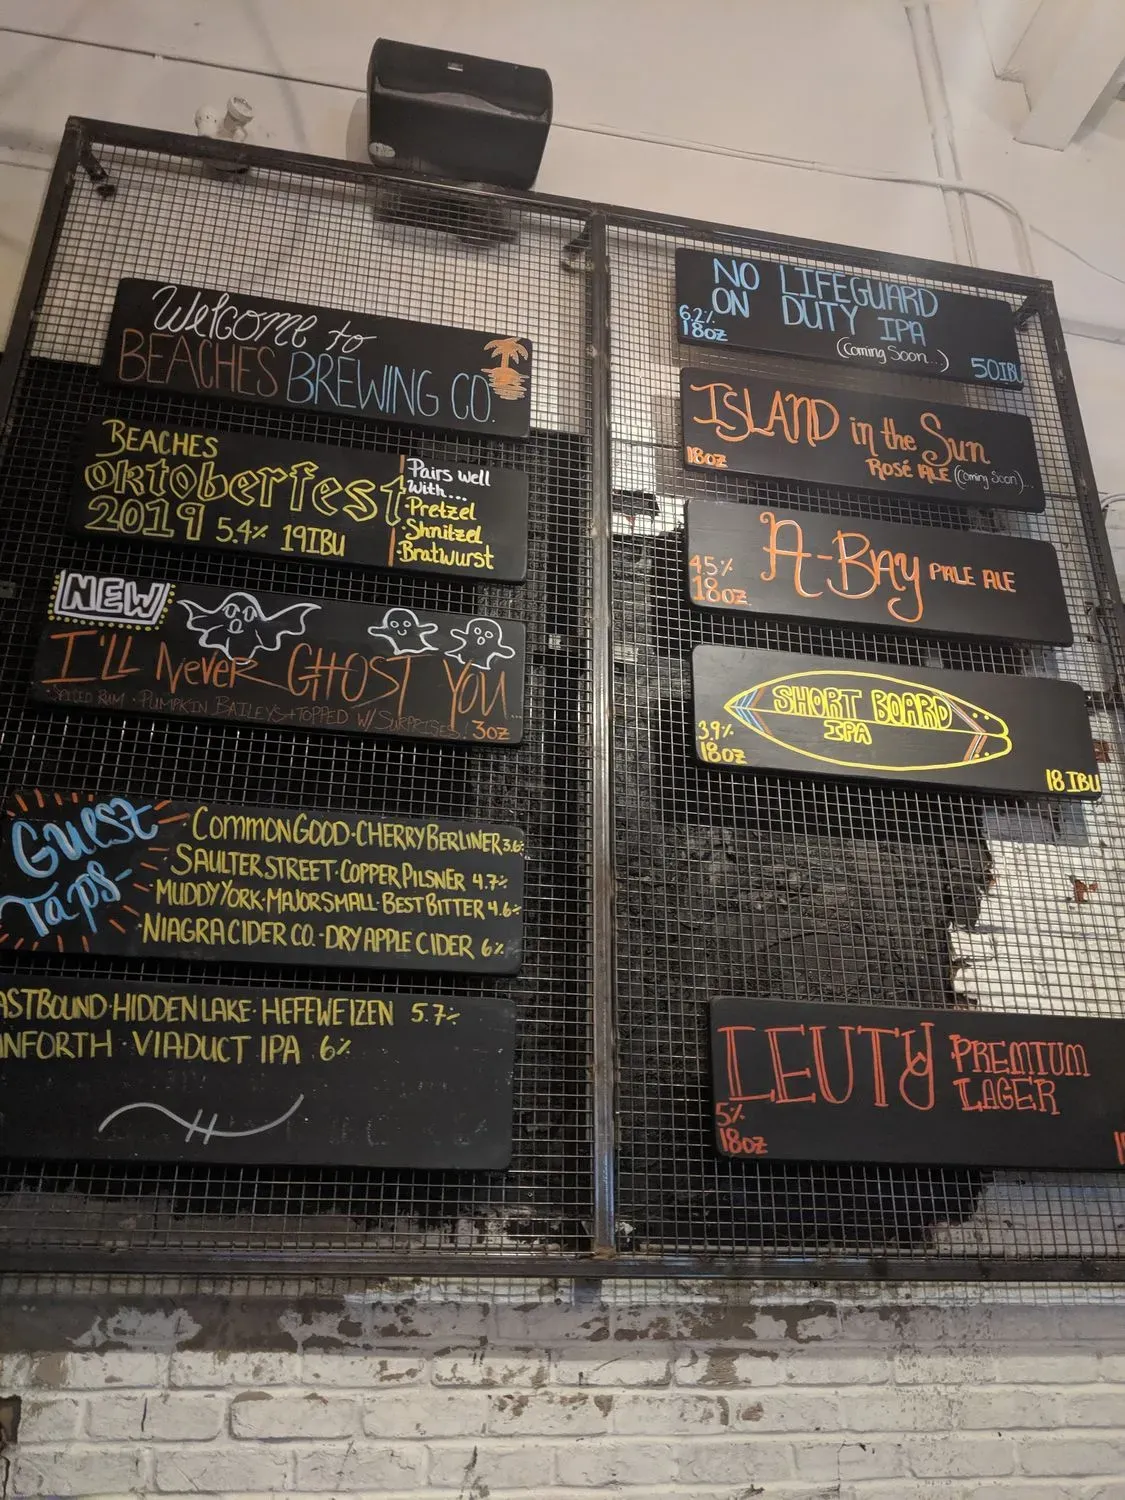 Welcome to
BEACHES BREWING CO.
BEACHES
Oktoberfest
2019 5.4% 19IBU
Pairs well
With...
·Pretzel
·Shnitzel
·Bratwurst
NEW
I'LL Never GHOST YOU...
SPICED RUM · PUMPKIN BAILEYS + TOPPED W/ SURPRISES! 3oz
Guest
Taps-
·COMMON GOOD·CHERRY BERLINER 3.6%
SAULTER STREET·COPPER PILSNER 4.7%
·MUDDY YORK·MAJOR SMALL·BEST BITTER 4.6%
·NIAGRA CIDER CO.·DRY APPLE CIDER 6%
ASTBOUND·HIDDEN LAKE·HEFEWEIZEN 5.7%
NFORTH·VIADUCT IPA 6%
NO LIFEGUARD
ON DUTY IPA
6.2%
18oz
(Coming Soon...)
50IBU
ISLAND in the Sun
18oz
ROSÉ ALE (Coming Soon)...
A-BAY PALE ALE
4.5%
18oz
SHORT BOARD
IPA
3.9%
18oz
18 IBU
LEUTY PREMIUM
LAGER
5%
18oz